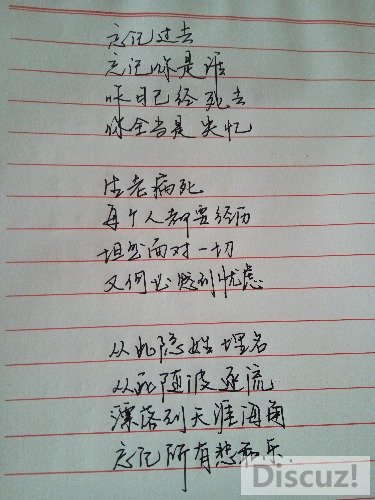 忘记过去
忘记你是谁
昨日已经死去
你全当是失忆
生老病死
每个人都要经历
坦然面对一切
又何必感到忧虑
从此隐姓埋名
从此随波逐流
漂落到天涯海角
忘记所有悲和乐.
Discuz!